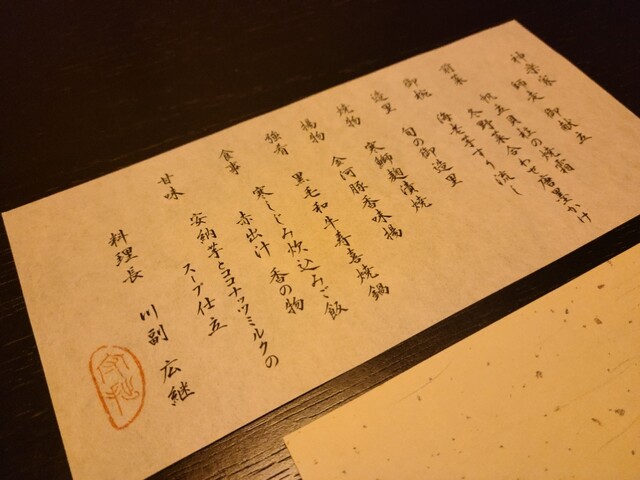 神楽家 師走 御献立
前菜 帆立貝柱の焼霜 唐墨かけ
冬野菜合わせ
御椀 海老芋すり流し
造里 旬の御造里
焼物 寒鰤麹漬焼
揚物 金河豚香味揚
強肴 黒毛和牛寿喜焼鍋
食事 寒しじみ炊込みご飯
赤出汁 香の物
甘味 安納芋とココナッツミルクの
スープ仕立
料理長 川副 広継